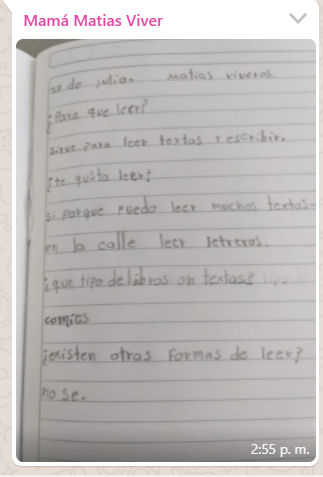 Mamá Matias Viver
28 de julio. Matias viveros
¿Para que leer?
sirve para leer textos y escribir.
¿te gusta leer?
si porque puedo leer muchos textos-
en la calle leer letreros.
¿que tipo de libros on textos?
comics
¿existen otras Formas de leer?
no se.
2:55 p. m.